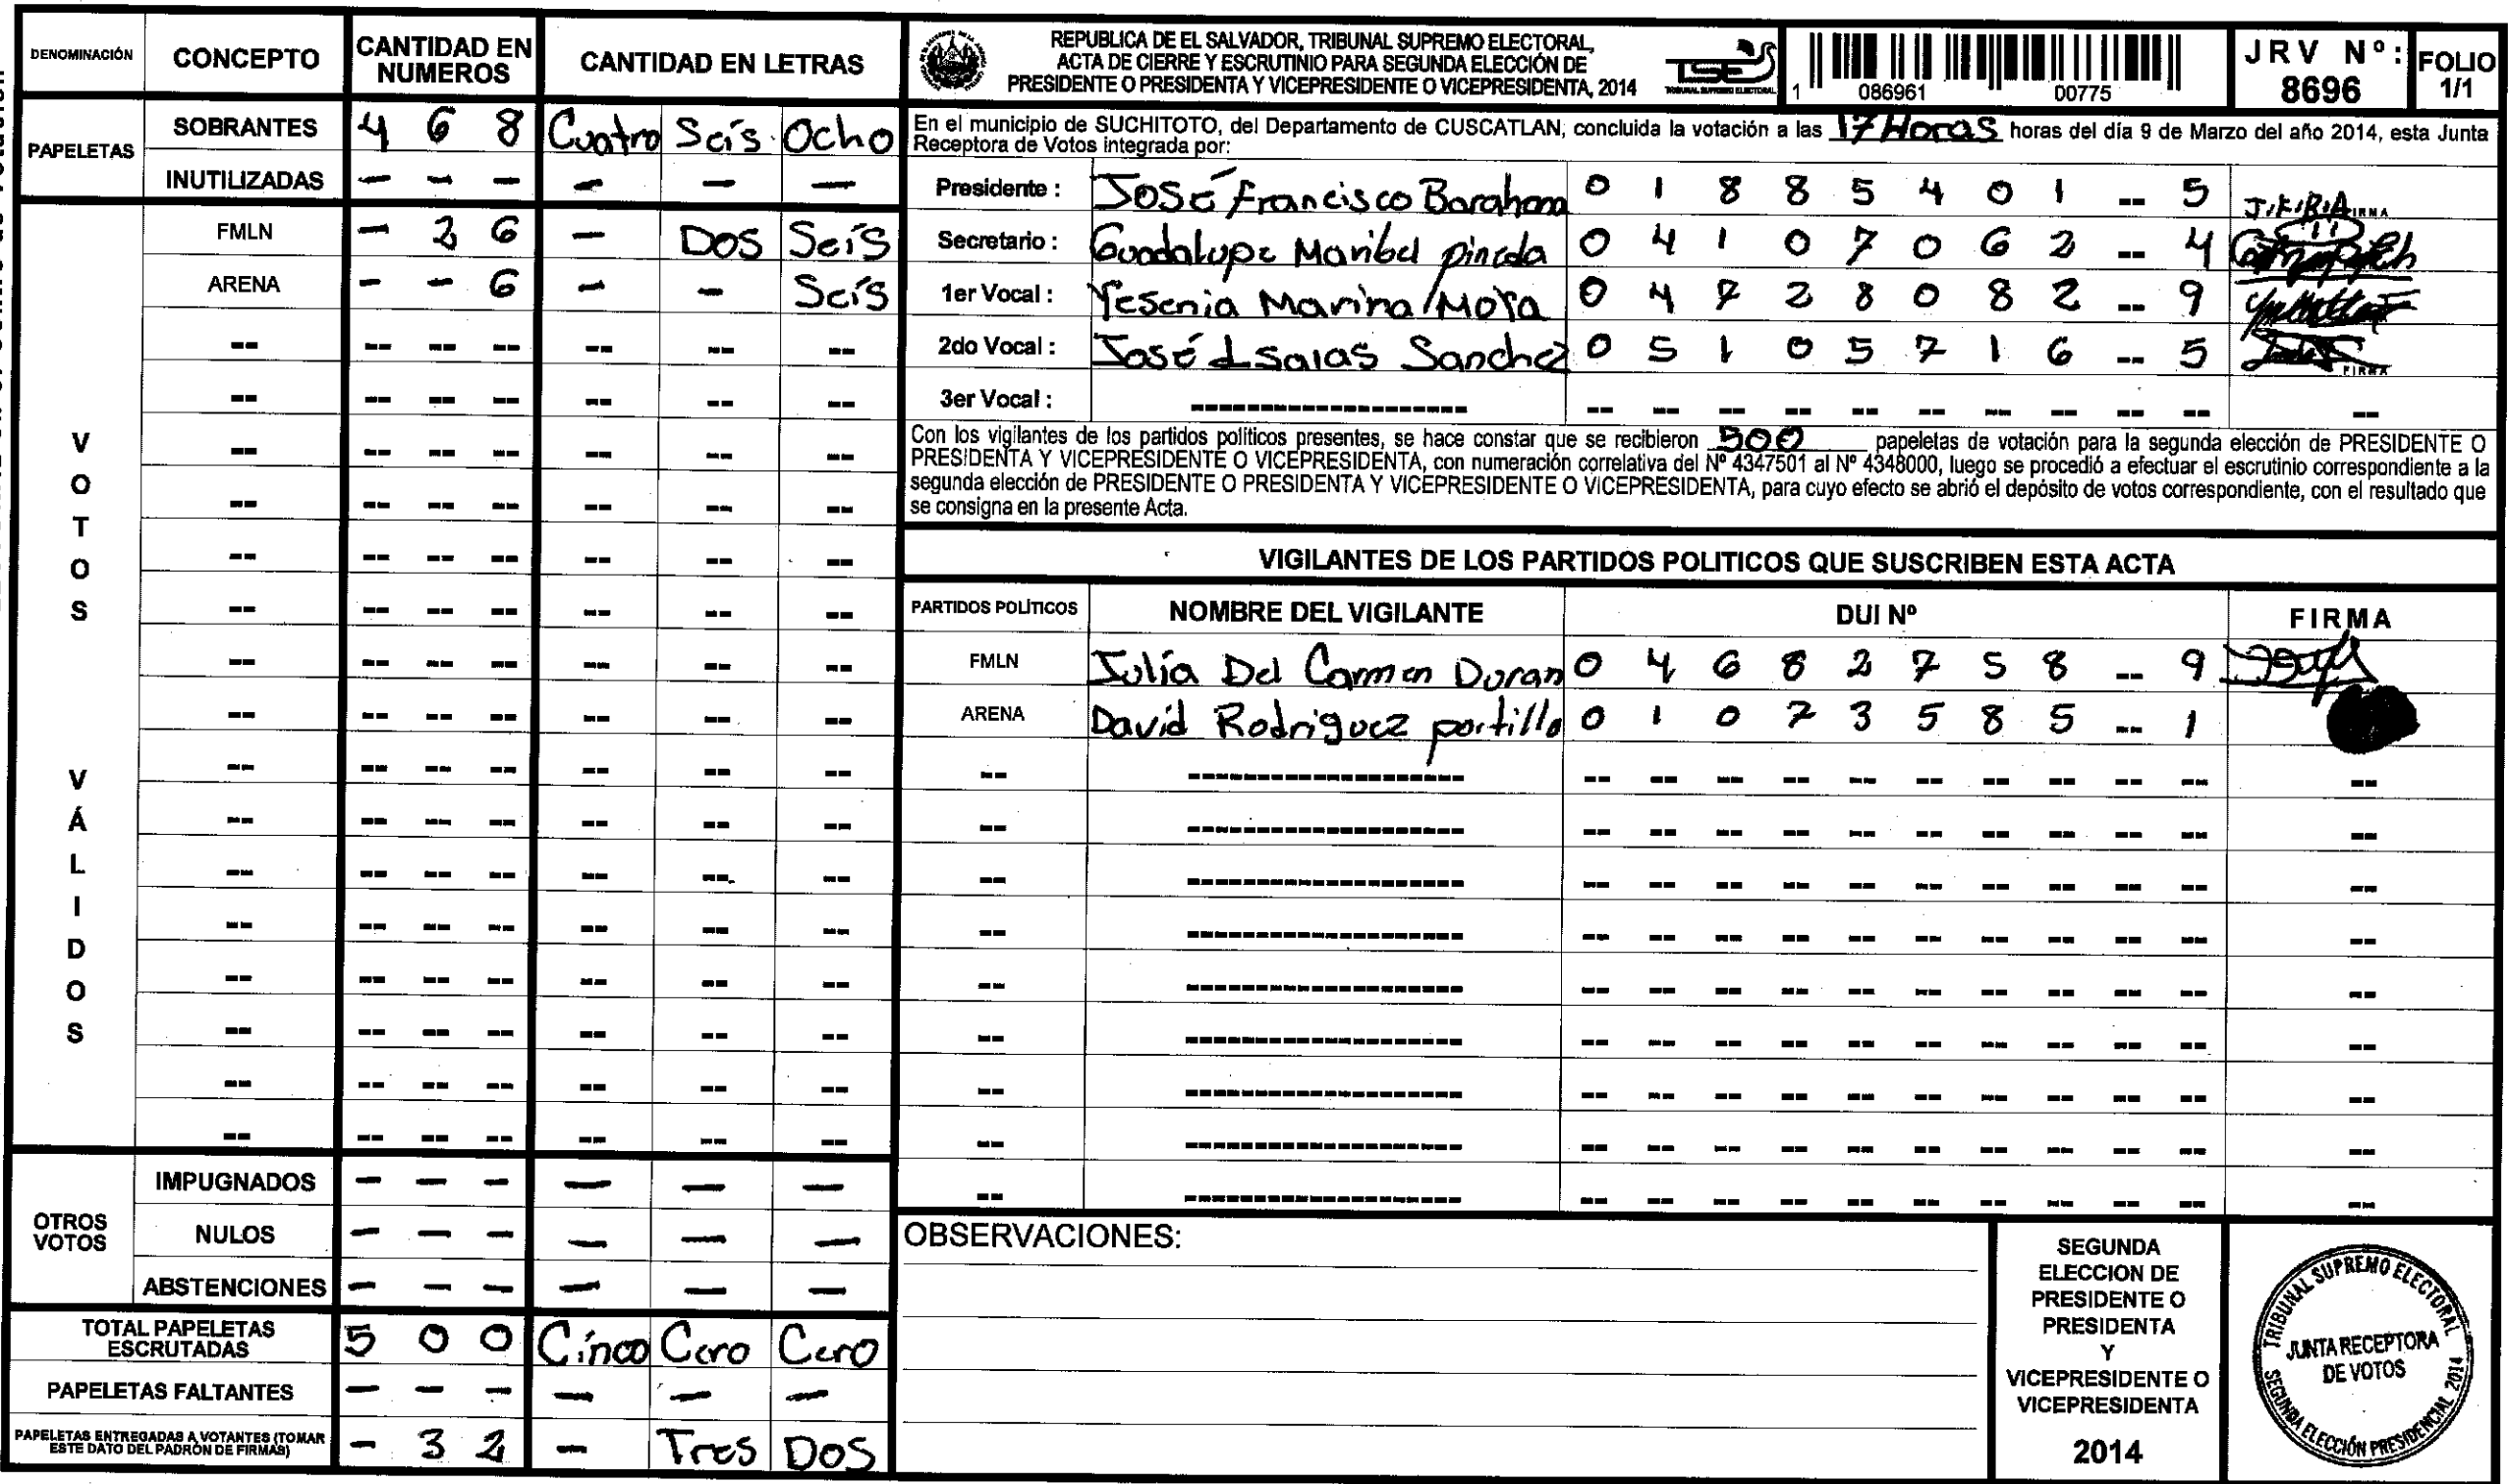 DENOMINACIÓN CONCEPTO CANTIDAD EN NUMEROS CANTIDAD EN LETRAS
PAPELETAS
SOBRANTES 4 6 8 Cuatro Seis Ocho
INUTILIZADAS - - - - - -
VOTOS VÁLIDOS
FMLN - 2 6 - Dos Seis
ARENA - - 6 - - Seis
OTROS VOTOS
IMPUGNADOS - - - - - -
NULOS - - - - - -
ABSTENCIONES - - - - - -
TOTAL PAPELETAS ESCRUTADAS 5 0 0 Cinco Cero Cero
PAPELETAS FALTANTES - - - - - -
PAPELETAS ENTREGADAS A VOTANTES (TOMAR ESTE DATO DEL PADRÓN DE FIRMAS) - 3 2 - Tres Dos
REPUBLICA DE EL SALVADOR, TRIBUNAL SUPREMO ELECTORAL,
ACTA DE CIERRE Y ESCRUTINIO PARA SEGUNDA ELECCIÓN DE
PRESIDENTE O PRESIDENTA Y VICEPRESIDENTE O VICEPRESIDENTA, 2014
TSE
TRIBUNAL SUPREMO ELECTORAL
1 086961 00775
JRV Nº: 8696
FOLIO 1/1
En el municipio de SUCHITOTO, del Departamento de CUSCATLAN, concluida la votación a las 17 Horas horas del día 9 de Marzo del año 2014, esta Junta
Receptora de Votos integrada por:
Presidente : José Francisco Barahona 0 1 8 8 5 4 0 1 -- 5 FIRMA
Secretario : Guadalupe Maribel pineda 0 4 1 0 7 0 6 2 -- 4
1er Vocal : Yesenia Marina Moya 0 4 7 2 8 0 8 2 -- 9
2do Vocal : José Isaias Sanchez 0 5 1 0 5 7 1 6 -- 5 FIRMA
3er Vocal :
Con los vigilantes de los partidos políticos presentes, se hace constar que se recibieron 500 papeletas de votación para la segunda elección de PRESIDENTE O
PRESIDENTA Y VICEPRESIDENTE O VICEPRESIDENTA, con numeración correlativa del Nº 4347501 al Nº 4348000, luego se procedió a efectuar el escrutinio correspondiente a la
segunda elección de PRESIDENTE O PRESIDENTA Y VICEPRESIDENTE O VICEPRESIDENTA, para cuyo efecto se abrió el depósito de votos correspondiente, con el resultado que
se consigna en la presente Acta.
VIGILANTES DE LOS PARTIDOS POLITICOS QUE SUSCRIBEN ESTA ACTA
PARTIDOS POLÍTICOS NOMBRE DEL VIGILANTE DUI Nº FIRMA
FMLN Julia Del Carmen Duran 0 4 6 8 2 7 5 8 -- 9
ARENA David Rodriguez portillo 0 1 0 7 3 5 8 5 -- 1
OBSERVACIONES:
SEGUNDA
ELECCION DE
PRESIDENTE O
PRESIDENTA
Y
VICEPRESIDENTE O
VICEPRESIDENTA
2014
TRIBUNAL SUPREMO ELECTORAL
JUNTA RECEPTORA
DE VOTOS
SEGUNDA ELECCIÓN PRESIDENCIAL 2014